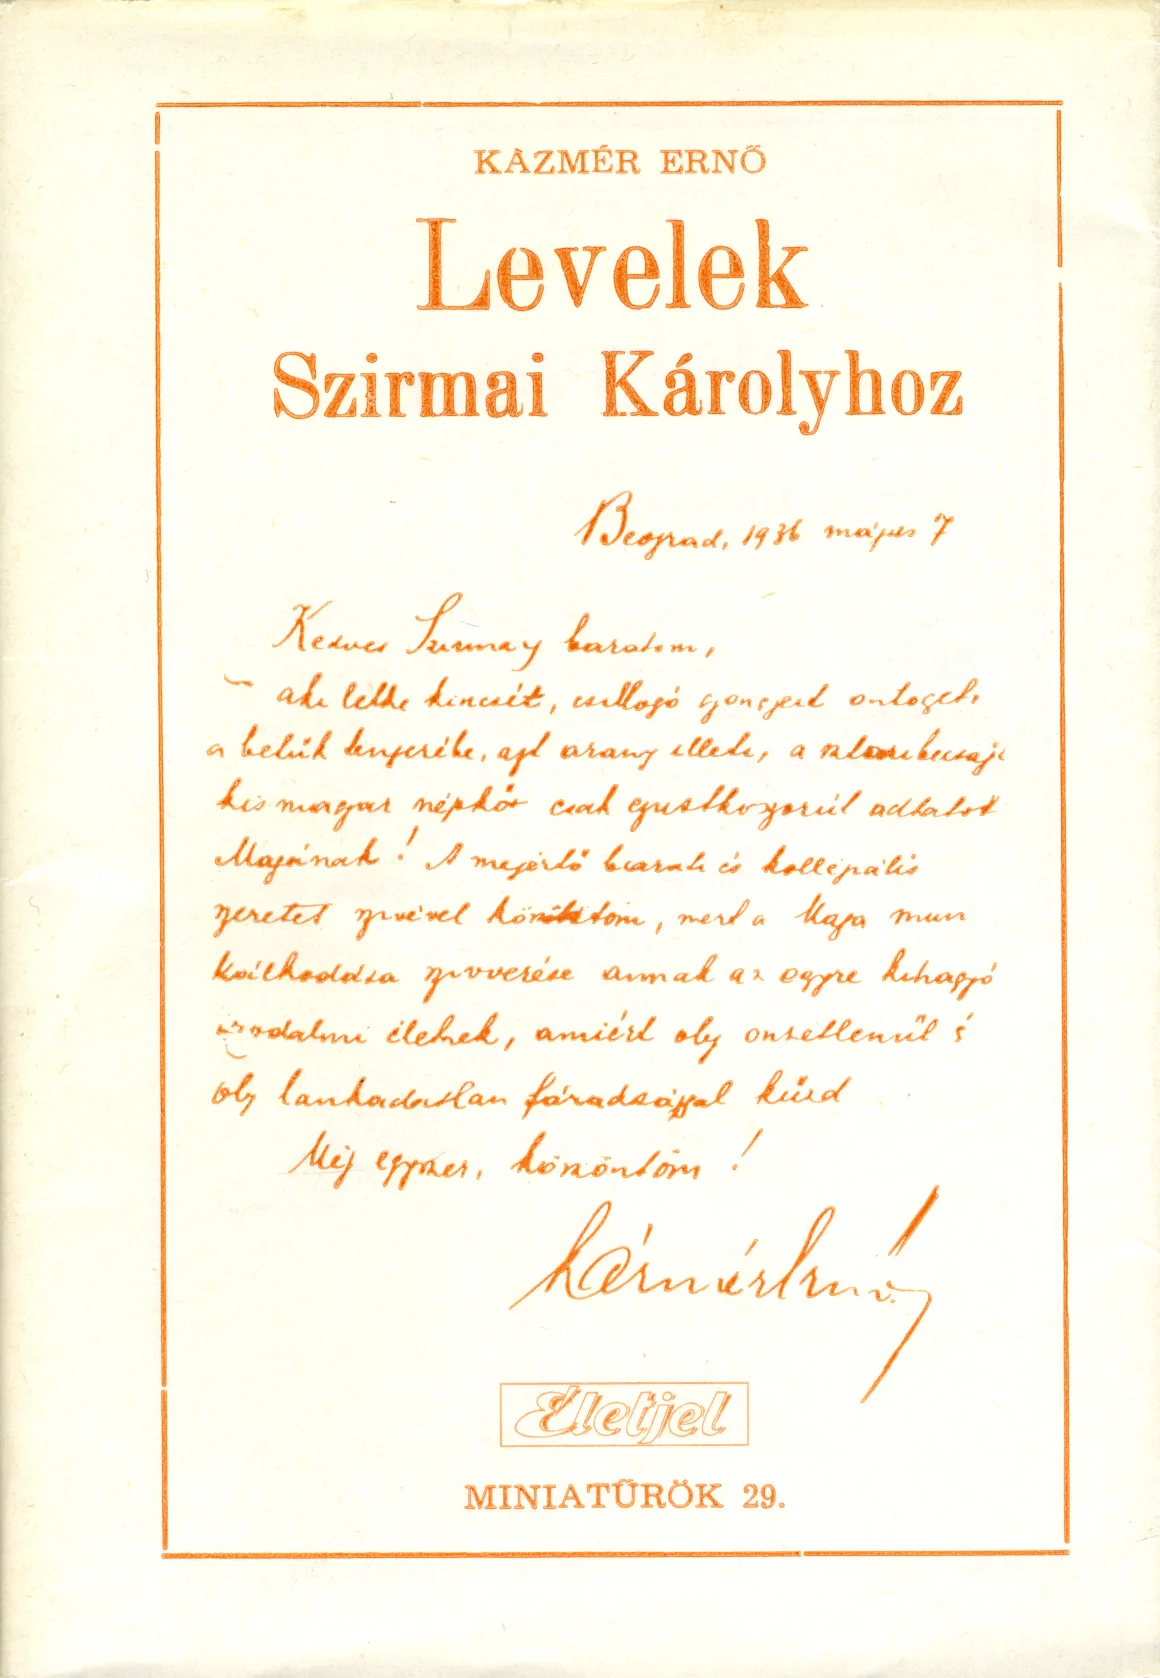 KÁZMÉR ERNŐ
Levelek
Szirmai Károlyhoz
Beograd, 1936 május 7
Kedves Szirmay barátom,
aki lelke kincsét, csillogó gyöngyeit
a betűk tengerébe, azt arany illeti, a
kis magyar népkör csak ezüstkoszorút adhatott
Magának! A megértő baráti és kollegiális
szeretet szívével köszöntöm, mert a Maga mun
kálkodása szívverése annak az egyre kihagyó
irodalmi életnek, amiért oly önzetlenül és
oly lankadatlan fáradsággal küzd
Még egyszer, köszöntöm!
Kázmér Ernő
Életjel
MINIATŰRÖK 29.